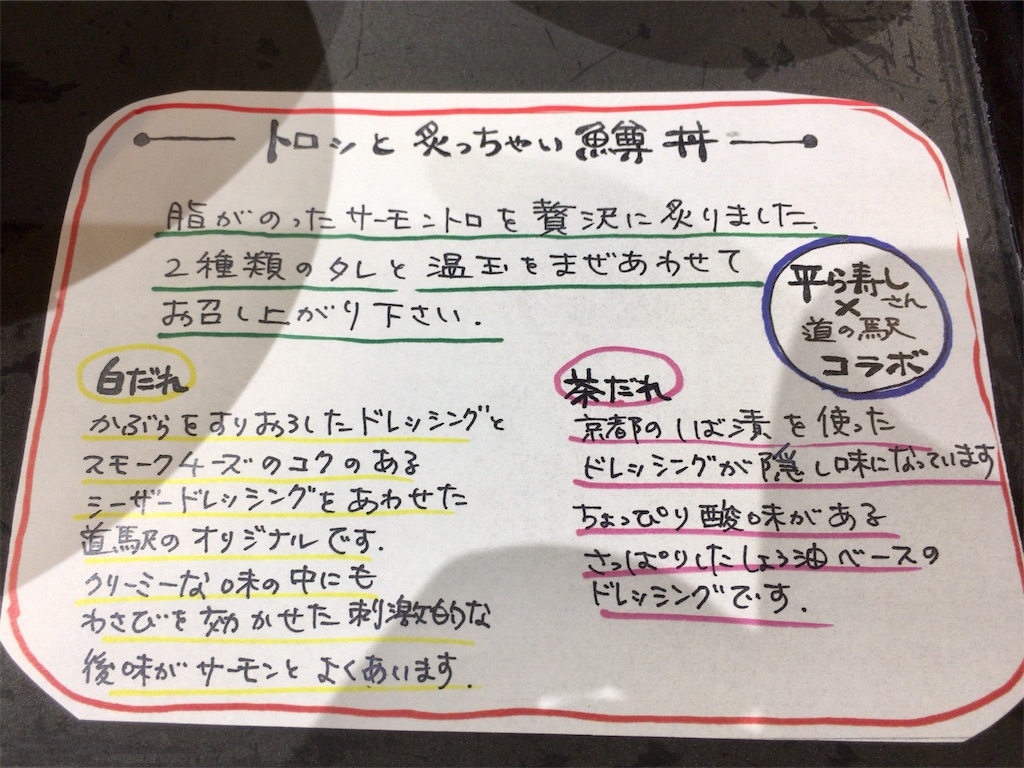 トロッと炙っちゃい鱒丼
脂がのったサーモントロを贅沢に炙りました.
2種類のタレと温玉をまぜあわせて
お召し上がり下さい.
平ら寿し
さん
×
道の駅
コラボ
白だれ
かぶらをすりおろしたドレッシングと
スモークチーズのコクのある
シーザードレッシングをあわせた
道駅のオリジナルです.
クリーミーな味の中にも
わさびを効かせた刺激的な
後味がサーモンとよくあいます.
茶だれ
京都のしば漬を使った
ドレッシングが隠し味になっています
ちょっぴり酸味がある
さっぱりしたしょう油ベースの
ドレッシングです.